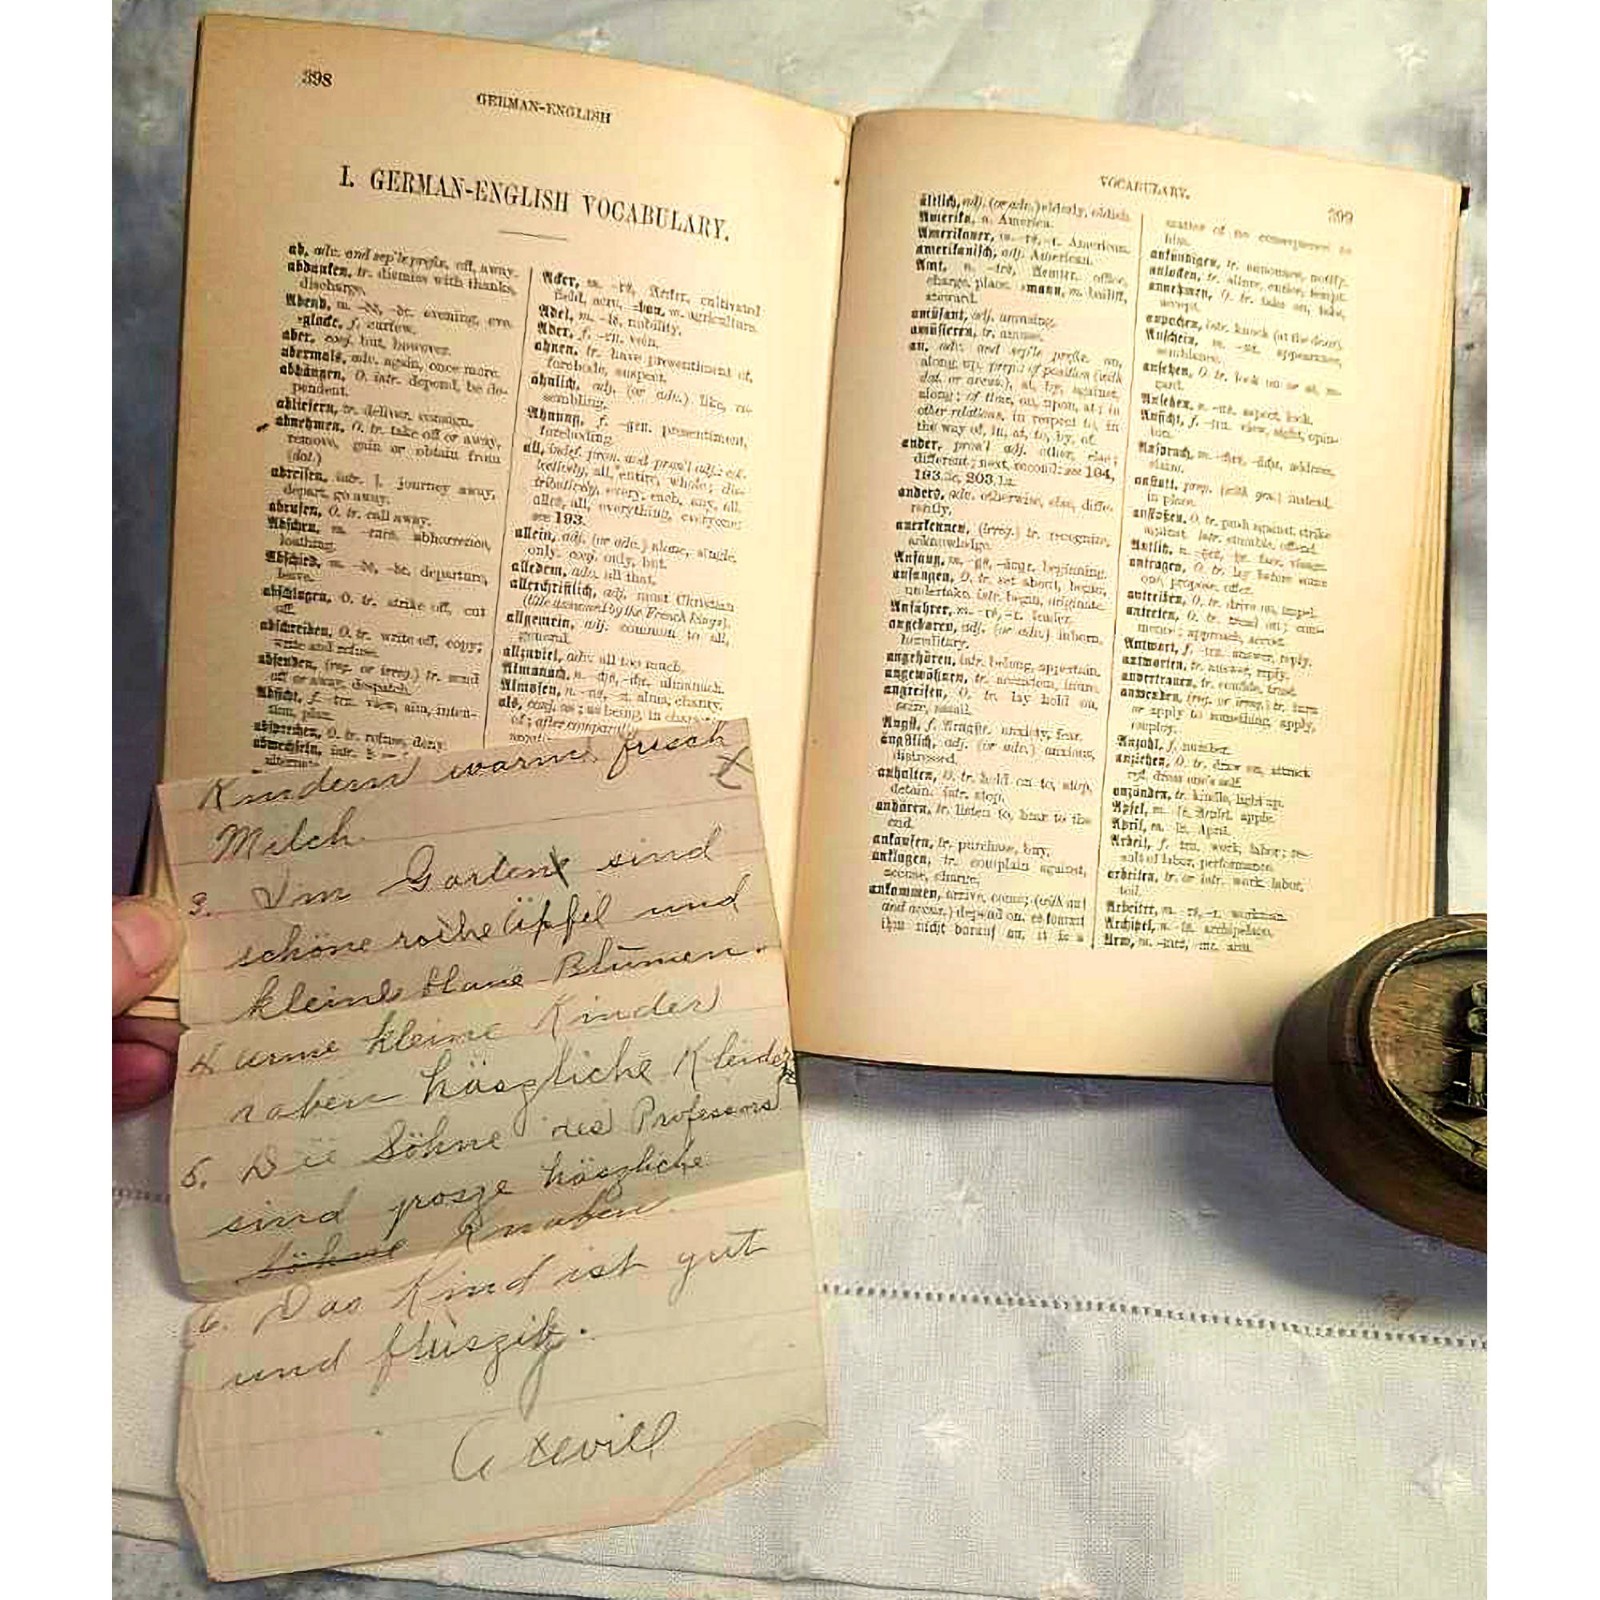 398
GERMAN-ENGLISH
I. GERMAN-ENGLISH VOCABULARY.
ab, adv. and sep'le prefix, off, away.
abdanken, tr. dismiss with thanks,
discharge.
Abend, m. -ds, -de. evening, eve.
-glocke, f. curfew.
aber, conj. but, however.
abermals, adv. again, once more.
abhängen, O. intr. depend, be de-
pendent.
abliefern, tr. deliver, consign.
abnehmen, O. tr. take off or away,
remove, gain or obtain from
(dat.)
abreisen, intr. f. journey away,
depart, go away.
abrufen, O. tr. call away.
Abscheu, m. abhorrence,
loathing.
Abschied, m. -ds, -de. departure,
leave.
abschlagen, O. tr. strike off, cut
off.
abschreiben, O. tr. write off, copy;
write and refuse.
absenden, (reg. or irreg.) tr. send
off or away, dispatch.
Absicht, f. -ten. view, aim, inten-
tion, plan.
absprechen, O. tr. refuse, deny.
abwechseln, intr.
alternate
Acker, m. -rs, Äcker. cultivated
field, acre. -bau, m. agriculture.
Adel, m. -ls. nobility.
Ader, f. -rn. vein.
ahnen, tr. have presentiment of,
forebode, suspect.
ähnlich, adj. (or adv.) like, re-
sembling.
Ahnung, f. -gen. presentiment,
foreboding.
all, indef. pron. and pron'l adj.: col-
lectively, all, entire, whole; dis-
tributively, every, each, any, all.
alles, all, everything, everyone:
see 193.
allein, adj. (or adv.) alone, single.
only. conj. only, but.
alledem, adv. all that.
allerchristlich, adj. most Christian
(title assumed by the French kings).
allgemein, adj. common to all,
general.
allzuviel, adv. all too much.
Almanach, n. -chs, -che. almanach.
Almosen, n. -ns, -n. alms, charity.
als, conj. as; as being, in
of; after
VOCABULARY.
399
ältlich, adj. (or adv.) elderly, oldish.
Amerika, n. America.
Amerikaner, m. -rs, -r. American.
amerikanisch, adj. American.
Amt, n. -tes, Aemter. office,
charge, place. -mann, m. bailiff,
steward.
amüsant, adj. amusing.
amüsieren, tr. amuse.
an, adv. and sep'le prefix. on,
along, up. prep'n of position (with
dat. or accus.), at, by, against,
along; of time, on, upon, at; in
other relations, in respect to, in
the way of, in, at, to, by, of.
ander, pron'l adj. other, else;
different; next, second: see 164,
193.3c, 203.1a.
anders, adv. otherwise, else, diffe-
rently.
anerkennen, (irreg.) tr. recognize,
acknowledge.
Anfang, m. -gs, -änge. beginning.
anfangen, O. tr. set about, begin,
undertake. intr. begin, originate.
Anführer, m. -rs, -r. leader.
angeboren, adj. (or adv.) inborn,
hereditary.
angehören, intr. belong, appertain.
angewöhnen, tr. accustom, inure.
angreifen, O. tr. lay hold on,
seize, assail.
Angst, f. Aengste. anxiety, fear.
ängstlich, adj. (or adv.) anxious,
distressed.
anhalten, O. tr. hold on to, stop,
detain. intr. stop.
anhören, tr. listen to, hear to the
end.
ankaufen, tr. purchase, buy.
anklagen, tr. complain against,
accuse, charge.
ankommen, arrive, come; (with auf
and accus.) depend on. es kommt
ihm nicht darauf an, it is a
matter of no consequence to
him.
ankündigen, tr. announce, notify.
anlocken, tr. allure, entice, tempt.
annehmen, O. tr. take on, take,
accept.
anpochen, intr. knock (at the door).
Anschein, m. -ns. appearance,
semblance.
ansehen, O. tr. look on or at, re-
gard.
Ansehen, n. -ns. aspect, look.
Ansicht, f. -ten. view, sight, opin-
ion.
Anspruch, m. -chs, -üche. address,
claim.
anstatt, prep. (with gen.) instead,
in place.
anstoßen, O. tr. push against, strike
against. intr. stumble, offend.
Antlitz, n. face, visage.
antragen, O. tr. lay before some
one, propose, offer.
antreiben, O. tr. drive on, impel.
antreten, O. tr. tread on; com-
mence; approach, accost.
Antwort, f. -ten. answer, reply.
antworten, tr. answer, reply.
anvertrauen, tr. confide, trust.
anwenden, (reg. or irreg.) tr. turn
or apply to something, apply,
employ.
Anzahl, f. number.
anziehen, O. tr. draw on, attract.
refl. dress one's self.
anzünden, tr. kindle, light up.
Apfel, m. -ls, Äpfel. apple.
April, m. -ls. April.
Arbeit, f. -ten. work, labor; re-
sult of labor, performance.
arbeiten, tr. or intr. work, labor,
toil.
Arbeiter, m. -rs, -r. workman.
Archipel, m. -ls. archipelago.
Arm, m. -mes, -me. arm.
Kindern warme frisch
Milch.
3. Im Garten sind
schöne rothe äpfel und
kleine blaue Blumen.
4 arme kleine Kinder
haben häszliche Kleider
5. Die Söhne des Professors
sind grosze häszliche
Söhne Knaben.
6. Das Kind ist gut
und fluszig.